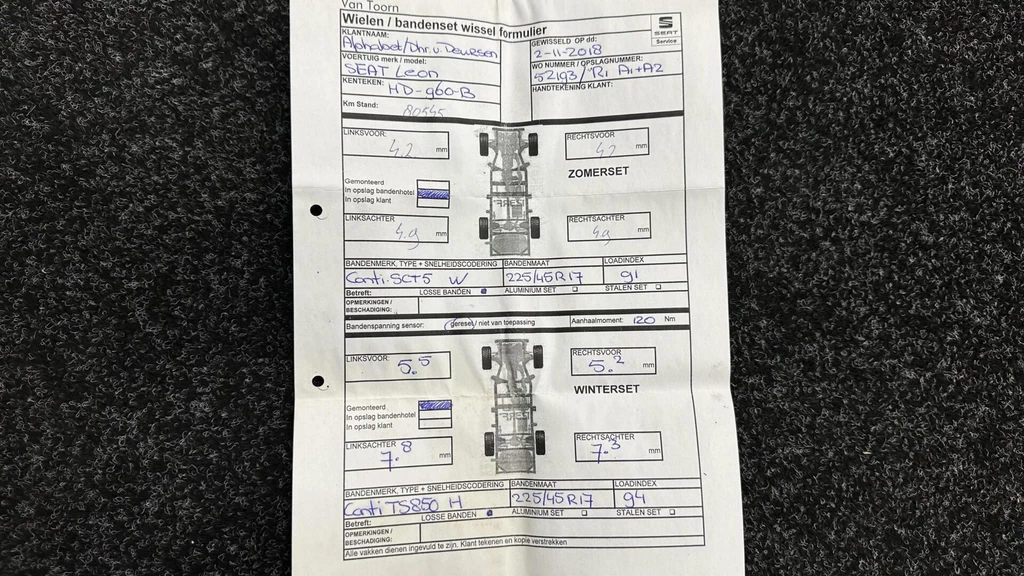 Van Toorn
Wielen / bandenset wissel formulier
SEAT
Service
KLANTNAAM:
Alphabet/Dhr. v. Deursen
GEWISSELD OP dd:
2-11-2018
VOERTUIG merk / model:
SEAT Leon
WO NUMMER / OPSLAGNUMMER:
52193/R1 A1+A2
KENTEKEN: HD-960-B
HANDTEKENING KLANT:
Km Stand: 80545
LINKSVOOR:
4.2 mm
RECHTSVOOR
4.2 mm
ZOMERSET
Gemonteerd
In opslag bandenhotel
In opslag klant
LINKSACHTER
4.9 mm
RECHTSACHTER
4.9 mm
BANDENMERK, TYPE + SNELHEIDSCODERING BANDENMAAT LOADINDEX
Conti-SCT5 W 225/45R17 91
Betreft: LOSSE BANDEN ALUMINIUM SET STALEN SET
OPMERKINGEN /
BESCHADIGING:
Bandenspanning sensor: gereset / niet van toepassing Aanhaalmoment: 120 Nm
LINKSVOOR:
5.5
RECHTSVOOR
5.2 mm
WINTERSET
Gemonteerd
In opslag bandenhotel
In opslag klant
LINKSACHTER
7.8 mm
RECHTSACHTER
7.3 mm
BANDENMERK, TYPE + SNELHEIDSCODERING BANDENMAAT LOADINDEX
Conti TS850 H 225/45R17 94
Betreft: LOSSE BANDEN ALUMINIUM SET STALEN SET
OPMERKINGEN /
BESCHADIGING:
Alle vakken dienen ingevuld te zijn. Klant tekenen en kopie verstrekken